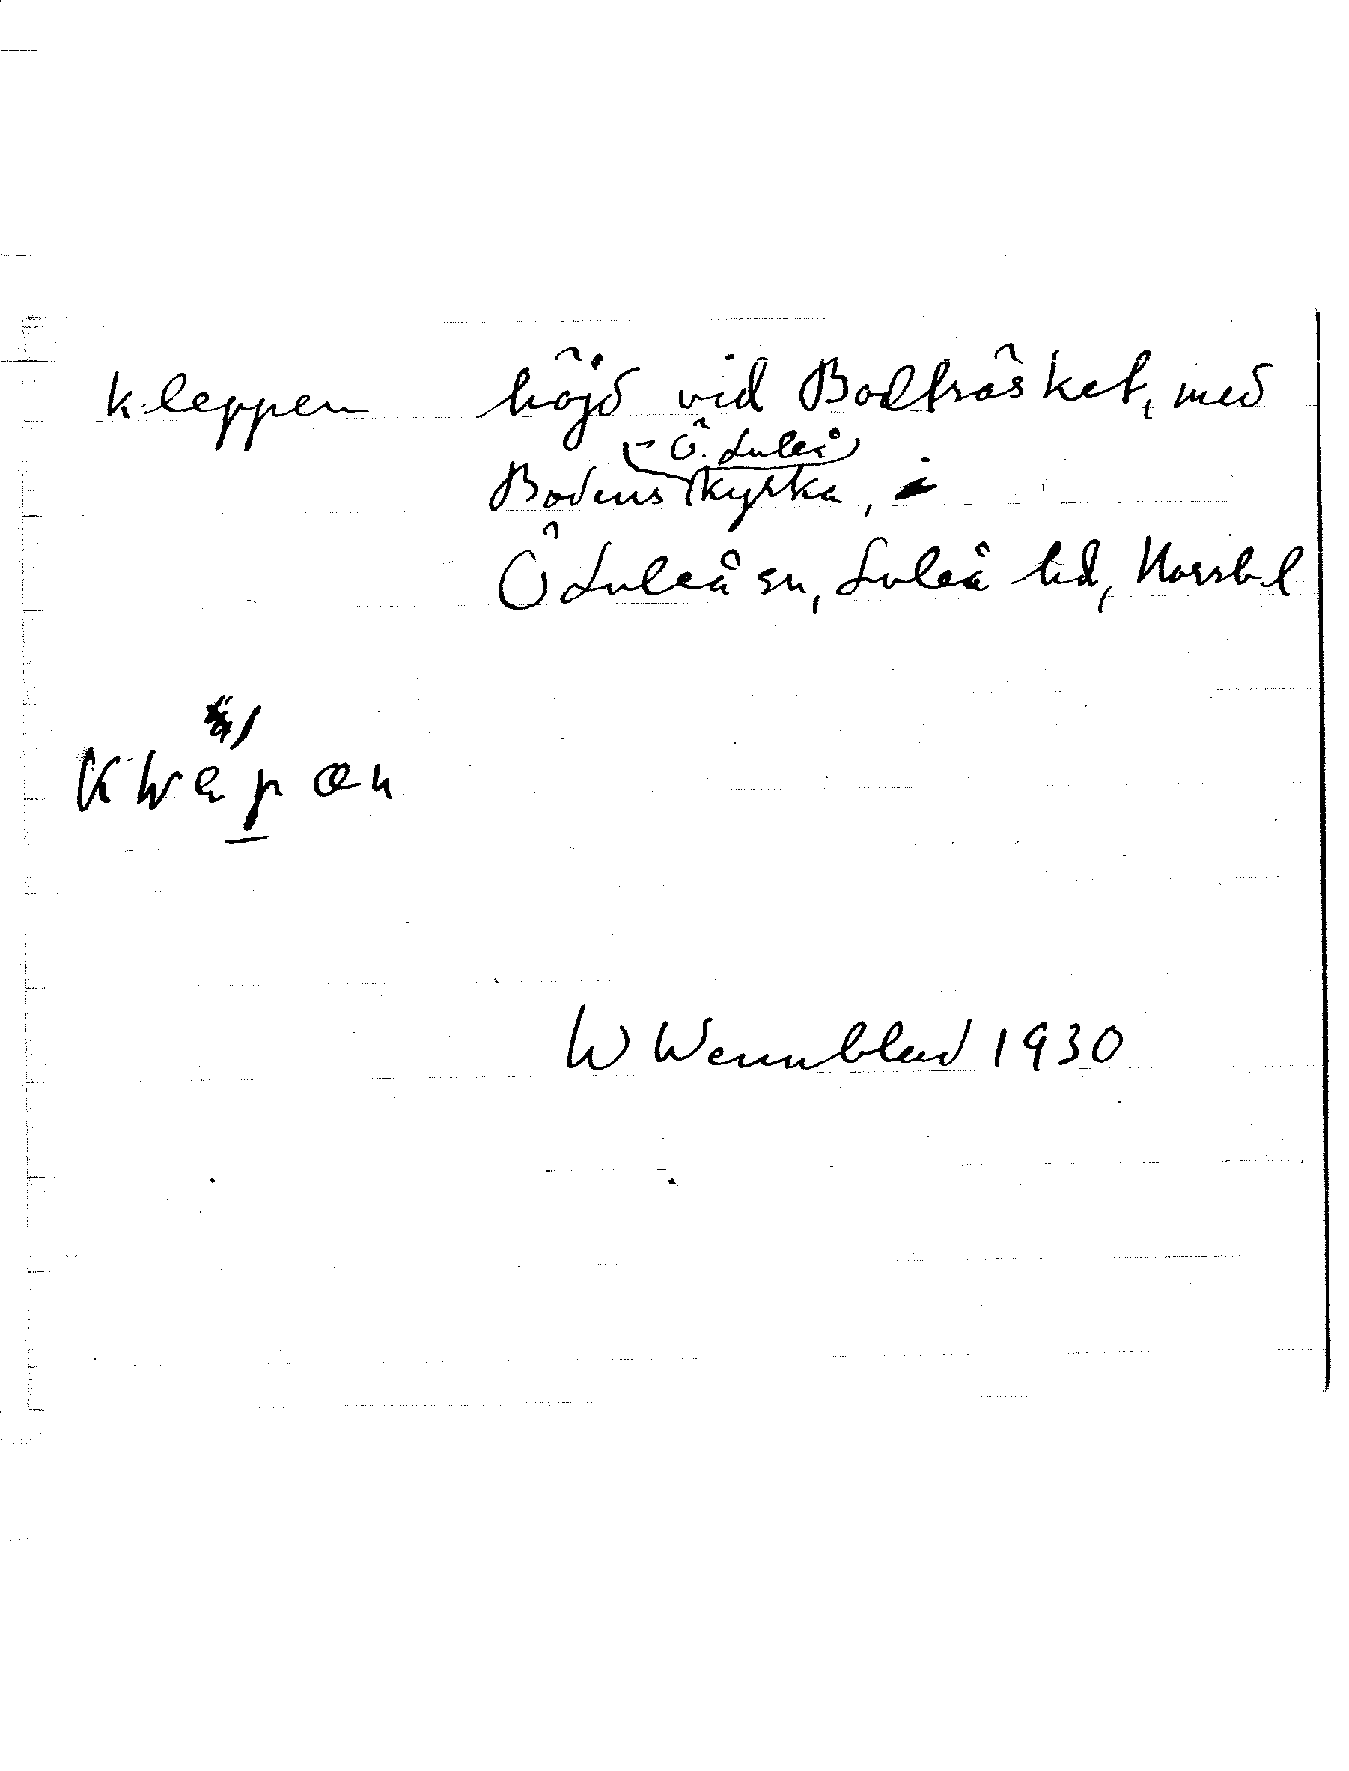 Kleppen höjd vid Bodträsket, med
(= Ö. Luleå)
Bodens kyrka, i
Ö Luleå sn, Luleå hd, Norrb l
W Wennblad 1930